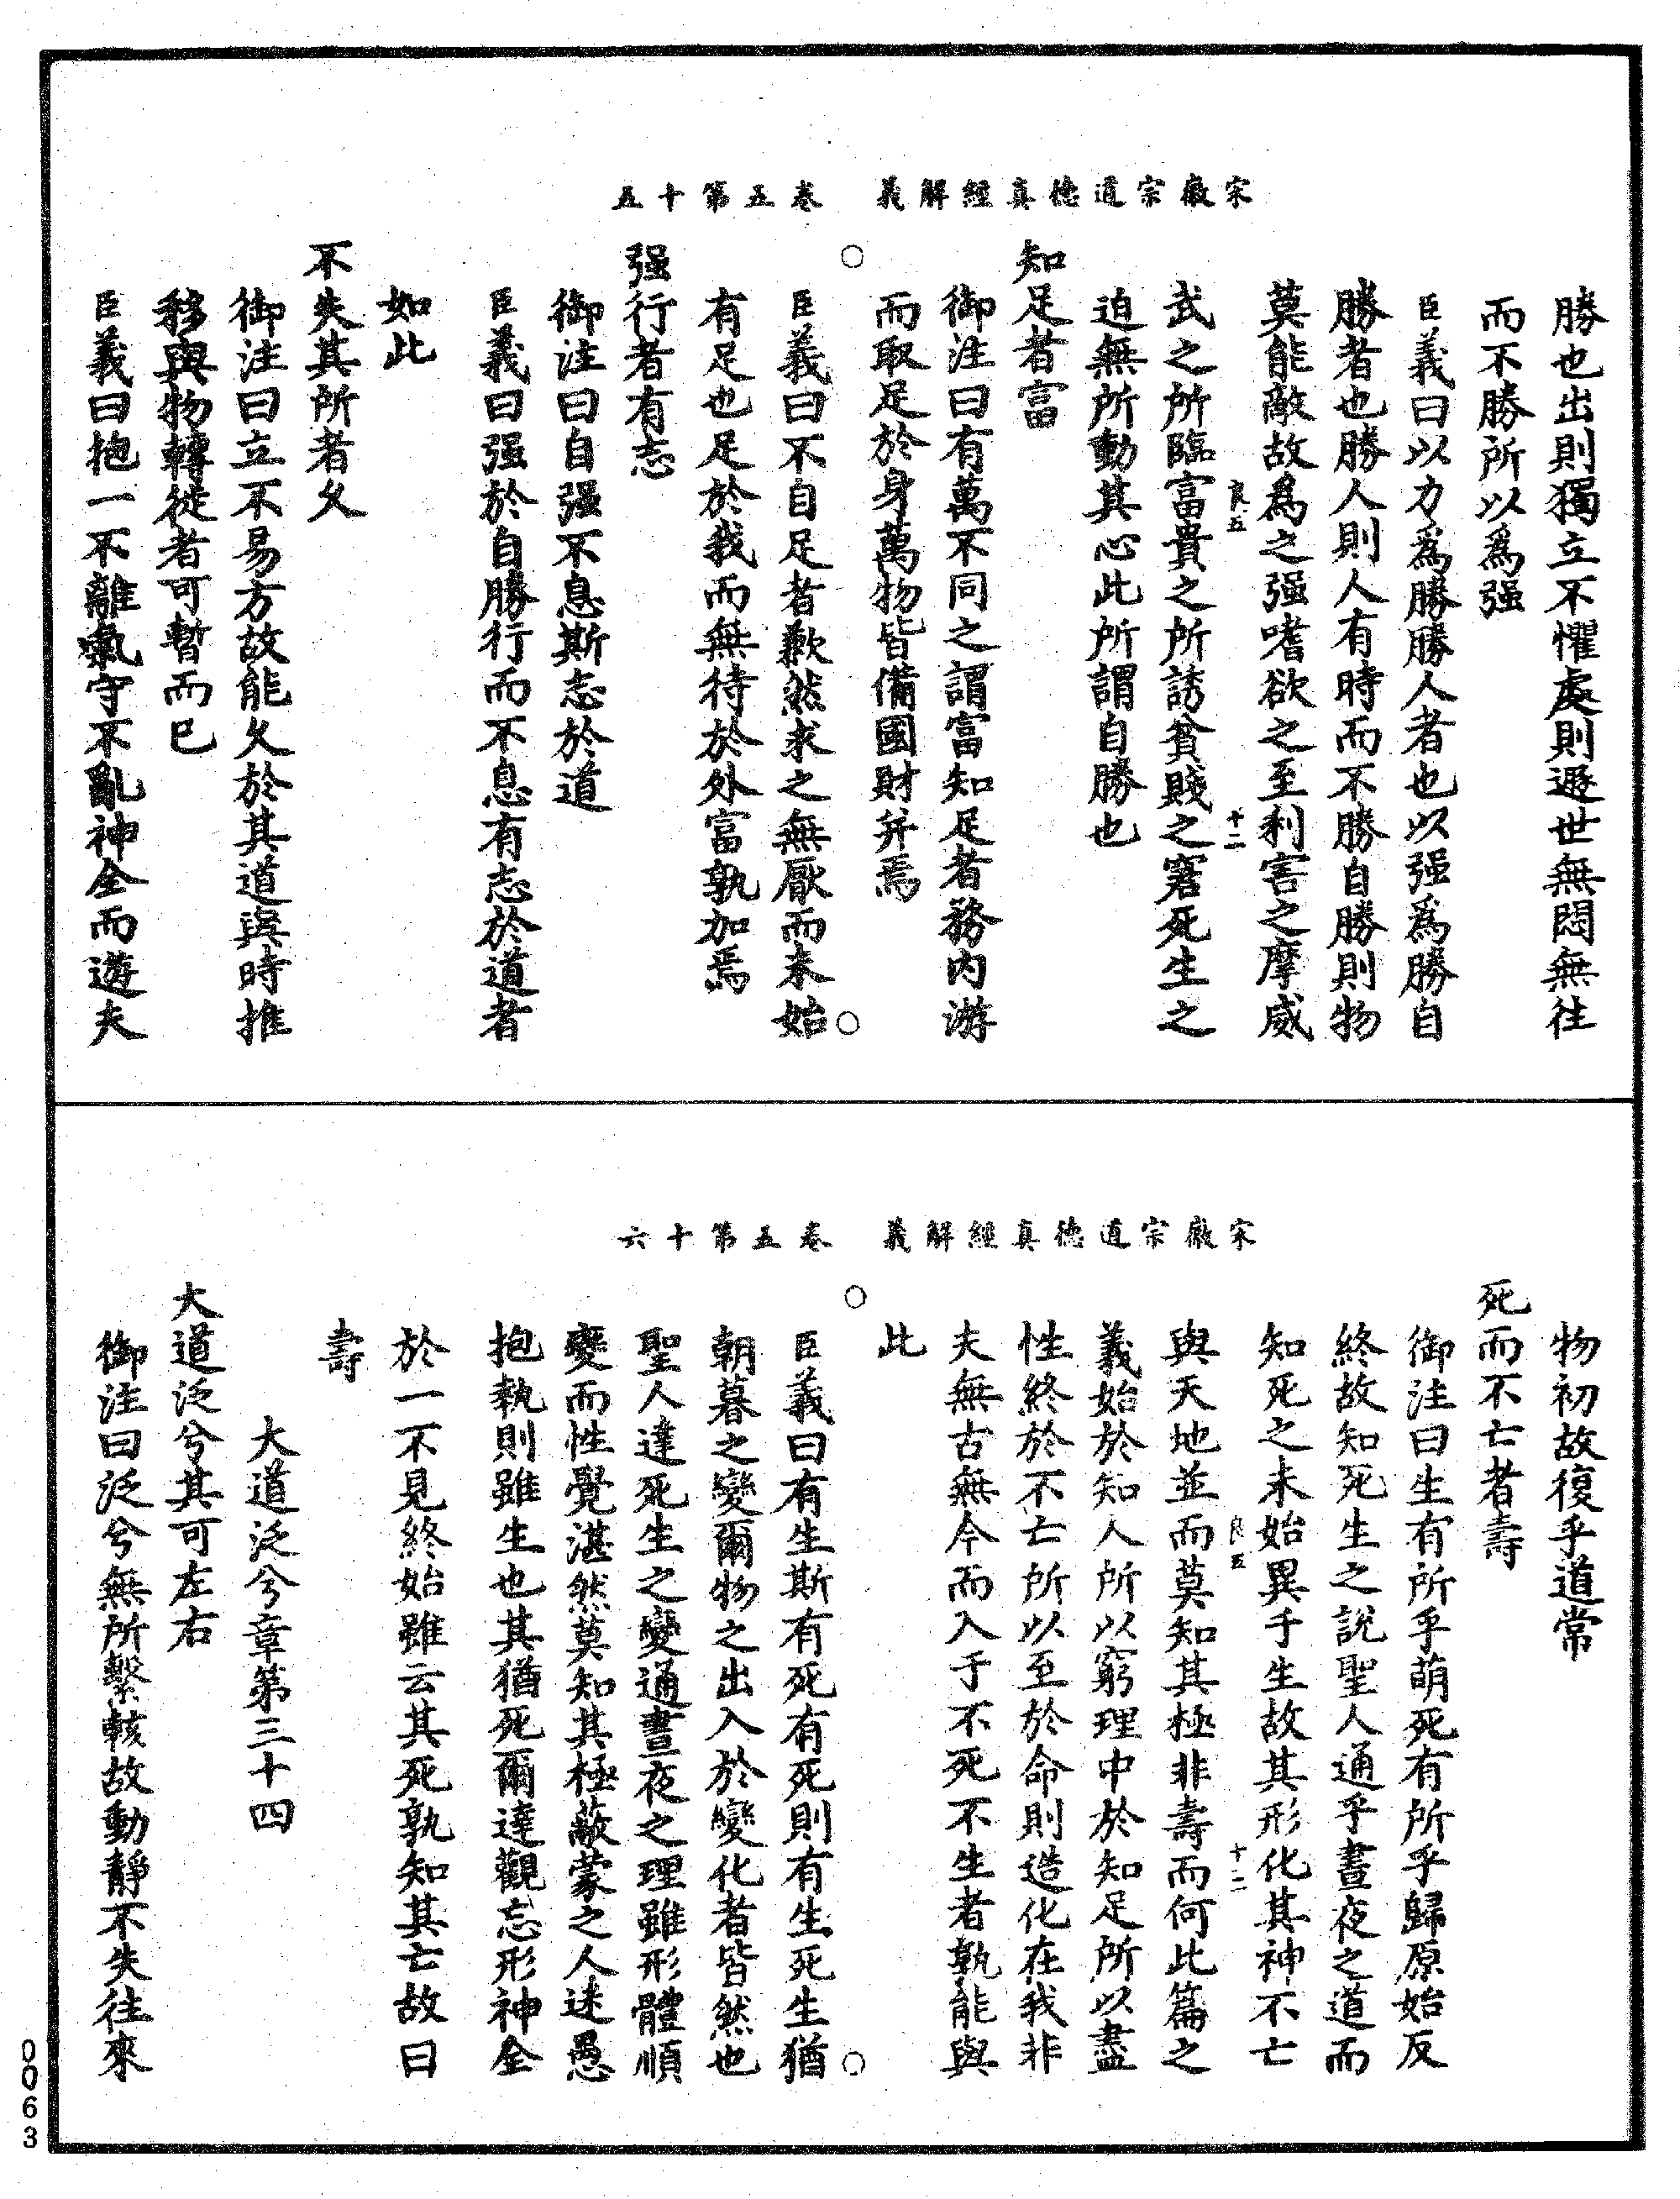 宋徽宗道德真經解義　卷五第十五
勝也出則獨立不懼處則遯世無悶無往
而不勝所以爲强
臣義曰以力爲勝勝人者也以强爲勝自
勝者也勝人則人有時而不勝自勝則物
莫能敵故爲之强嗜欲之至利害之摩威
良五　十二
武之所臨富貴之所誘貧賤之窘死生之
迫無所動其心此所謂自勝也
知足者富
御注曰有萬不同之謂富知足者務內游
而取足於身萬物皆備國財并焉
臣義曰不自足者歉然求之無厭而未始
有足也足於我而無待於外富孰加焉
强行者有志
御注曰自强不息斯志於道
臣義曰强於自勝行而不息有志於道者
如此
不失其所者久
御注曰立不易方故能久於其道與時推
移與物轉徙者可暫而已
臣義曰抱一不離氣守不亂神全而遊夫
宋徽宗道德真經解義　卷五第十六
物初故復乎道常
死而不亡者壽
御注曰生有所乎萌死有所乎歸原始反
終故知死生之說聖人通乎晝夜之道而
知死之未始異于生故其形化其神不亡
良五　十二
與天地並而莫知其極非壽而何此篇之
義始於知人所以窮理中於知足所以盡
性終於不亡所以至於命則造化在我非
夫無古無今而入于不死不生者孰能與
此
臣義曰有生斯有死有死則有生死生猶
朝暮之變爾物之出入於變化者皆然也
聖人達死生之變通晝夜之理雖形體順
變而性覺湛然莫知其極蔽蒙之人迷愚
抱執則雖生也其猶死爾達觀忘形神全
於一不見終始雖云其死孰知其亡故曰
壽
大道泛兮章第三十四
大道泛兮其可左右
御注曰泛兮無所繫輆故動靜不失往來
0063